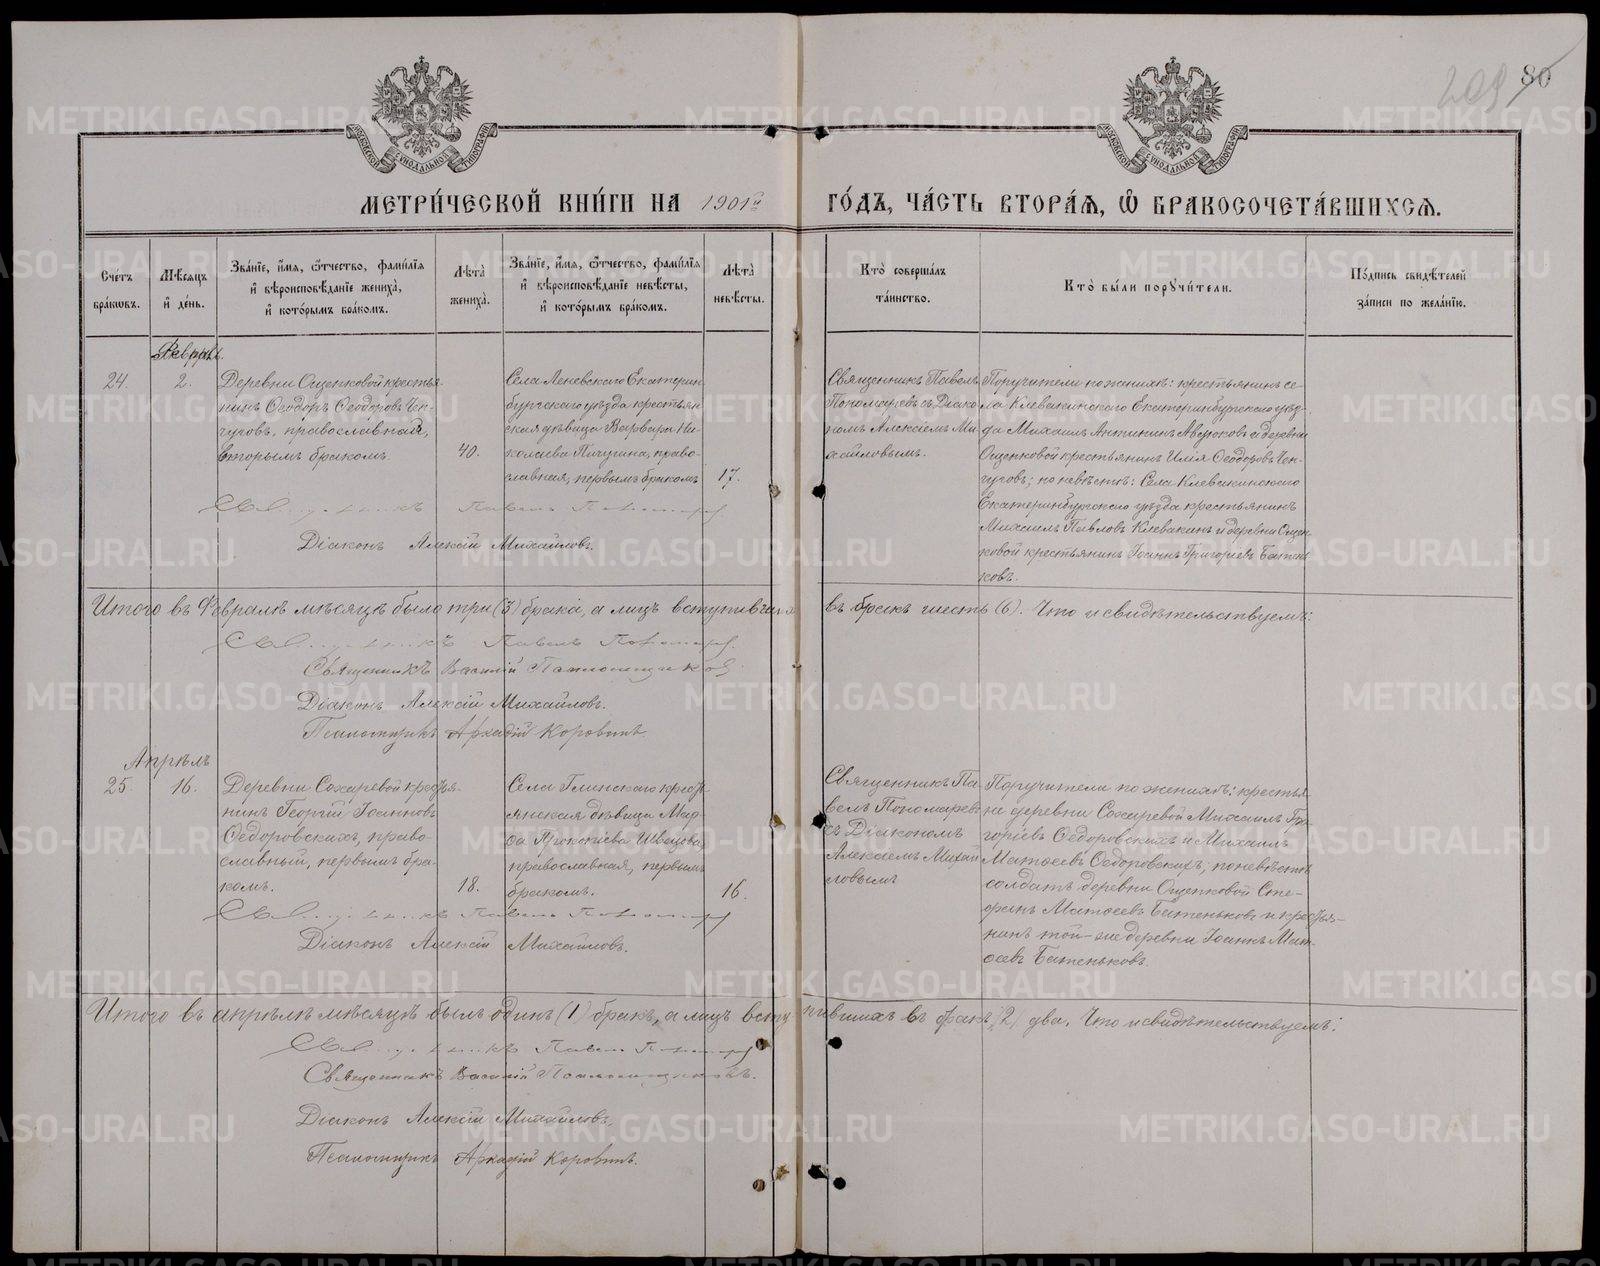 209 80
МОСКОВСКОЙ СѴНОДАЛЬНОЙ ТИПОГРАФІИ
МОСКОВСКОЙ СѴНОДАЛЬНОЙ ТИПОГРАФІИ
МЕТРИ́ЧЕСКОЙ КНИ́ГИ НА 1901й ГО́ДЪ, ЧА́СТЬ ВТОРА́Я, Ѽ БРАКОСОЧЕТА́ВШИХСЯ.
Сче́тъ
бра́ковъ.
Мѣ́сяцъ
и҆ де́нь.
Зва́нїе, и҆́мя, ѻ҆́тчество, фами́лїя
и҆ вѣроисповѣ́данїе жениха̀,
и҆ кото́рымъ бра́комъ.
Лѣ́та
жениха̀.
Зва́нїе, и҆́мя, ѻ҆́тчество, фами́лїя
и҆ вѣроисповѣ́данїе невѣ́сты,
и҆ кото́рымъ бра́комъ.
Лѣ́та
невѣ́сты.
Кто̀ соверша́лъ
та́инство.
Кто̀ бы́ли порꙋчи́тели.
По́дпись свидѣ́телей
за́писи по жела́нїю.
24.
2.
Деревни Ощепковой крестья-
нинъ Ѳеодоръ Ѳеодоровъ Чен-
чуговъ, православный,
вторымъ бракомъ.
40.
Села Леневскаго Екатерин
бургскаго уѣзда крестьян
ская дѣвица Варвара Ни-
колаева Пичугина, право-
славная, первымъ бракомъ
17.
Священникъ Павелъ
Пономаревъ съ Діако-
номъ Алексіемъ Ми-
хайловымъ.
Поручители по женихѣ: крестьянинъ се-
ла Клевакинскаго Екатеринбургскаго уѣз-
да Михаилъ Антипинъ Аверюковъ и деревни
Ощепковой крестьянинъ Илія Ѳеодоровъ Чен-
чуговъ; по невѣстѣ: Села Клевакинскаго
Екатеринбургскаго уѣзда крестьянинъ
Михаилъ Павловъ Клевакинъ и деревни Ощеп-
ковой крестьянинъ Іоаннъ Григорьевъ Батень-
ковъ.
Священникъ Павелъ Пономаревъ
Діаконъ Алексій Михайловъ.
Итого въ Февралѣ мѣсяцѣ было три (3) брака, а лицъ вступившихъ въ бракъ шесть (6). Что и свидѣтельствуемъ:
Священникъ Павелъ Пономаревъ.
Священникъ Василій
Діаконъ Алексій Михайловъ.
Псаломщикъ Аркадій Коровинъ.
Апрѣль
25.
16.
Деревни Сохаревой крестья-
нинъ Георгій Іоанновъ
Ѳедоровскихъ, право-
славный, первымъ бра-
комъ.
18.
Села Глинскаго крестьк-
янская дѣвица Маѳ-
ра Прокопіева Швецова,
православная, первымъ
бракомъ.
16.
Священникъ Па-
велъ Пономаревъ
съ Діакономъ
Алексіемъ Михай
ловымъ
Поручители по женихѣ: крестья-
не деревни Сохаревой Михаилъ Гри-
горіевъ Ѳедоровскихъ и Михаилъ
Матѳеевъ Ѳедоровскихъ; по невѣстѣ
солдатъ деревни Ощепковой Сте-
фанъ Матѳеевъ Батеньковъ и крестья-
нинъ той-же деревни Іоаннъ Мат-
ѳеевъ Батеньковъ.
Священникъ Павелъ Пономаревъ
Діаконъ Алексій Михайловъ.
Итого въ апрѣлѣ мѣсяцѣ былъ одинъ (1) бракъ, а лицъ вступившихъ въ бракъ (2) два. Что и свидѣтельствуемъ:
Священникъ Павелъ Пономаревъ
Священникъ Василій
Діаконъ Алексій Михайловъ.
Псаломщикъ Аркадій Коровинъ.
METRIKI.GASO-URAL.RU